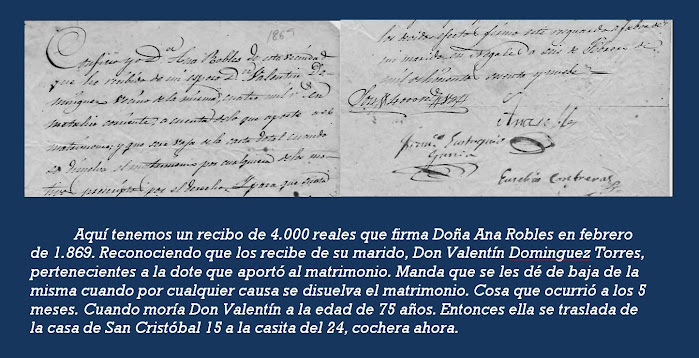 1869
Confieso yo Dª Ana Robles de esta vecindad
que he recibido de mi esposo Dn Valentin Do-
minguez vecino de la misma, cuatro mil rs en
metalico corriente a cuenta de lo que aporté a el
matrimonio, y que sea baja de la carta dotal cuando
se disuelva el matrimonio por cualquiera de los mo-
tivos por el derecho. Y para que surta
los devidos efectos firmo este resguardo a favor de
mi marido en a seis de Febrero de
mil ochocientos sesenta y nueve
Son 4000
Ana
Eustaquio
Garcia
Eusebio Contreras
Aquí tenemos un recibo de 4.000 reales que firma Doña Ana Robles en febrero
de 1.869. Reconociendo que los recibe de su marido, Don Valentín Dominguez Torres,
pertenecientes a la dote que aportó al matrimonio. Manda que se les dé de baja de la
misma cuando por cualquier causa se disuelva el matrimonio. Cosa que ocurrió a los 5
meses. Cuando moría Don Valentín a la edad de 75 años. Entonces ella se traslada de
la casa de San Cristóbal 15 a la casita del 24, cochera ahora.